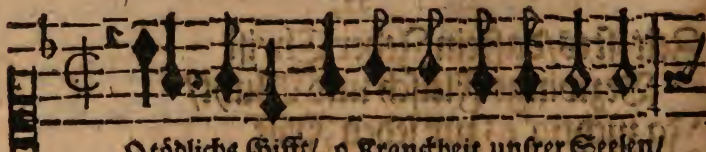 O tödliche Gifft/ o Kranckheit unsrer Seelen/